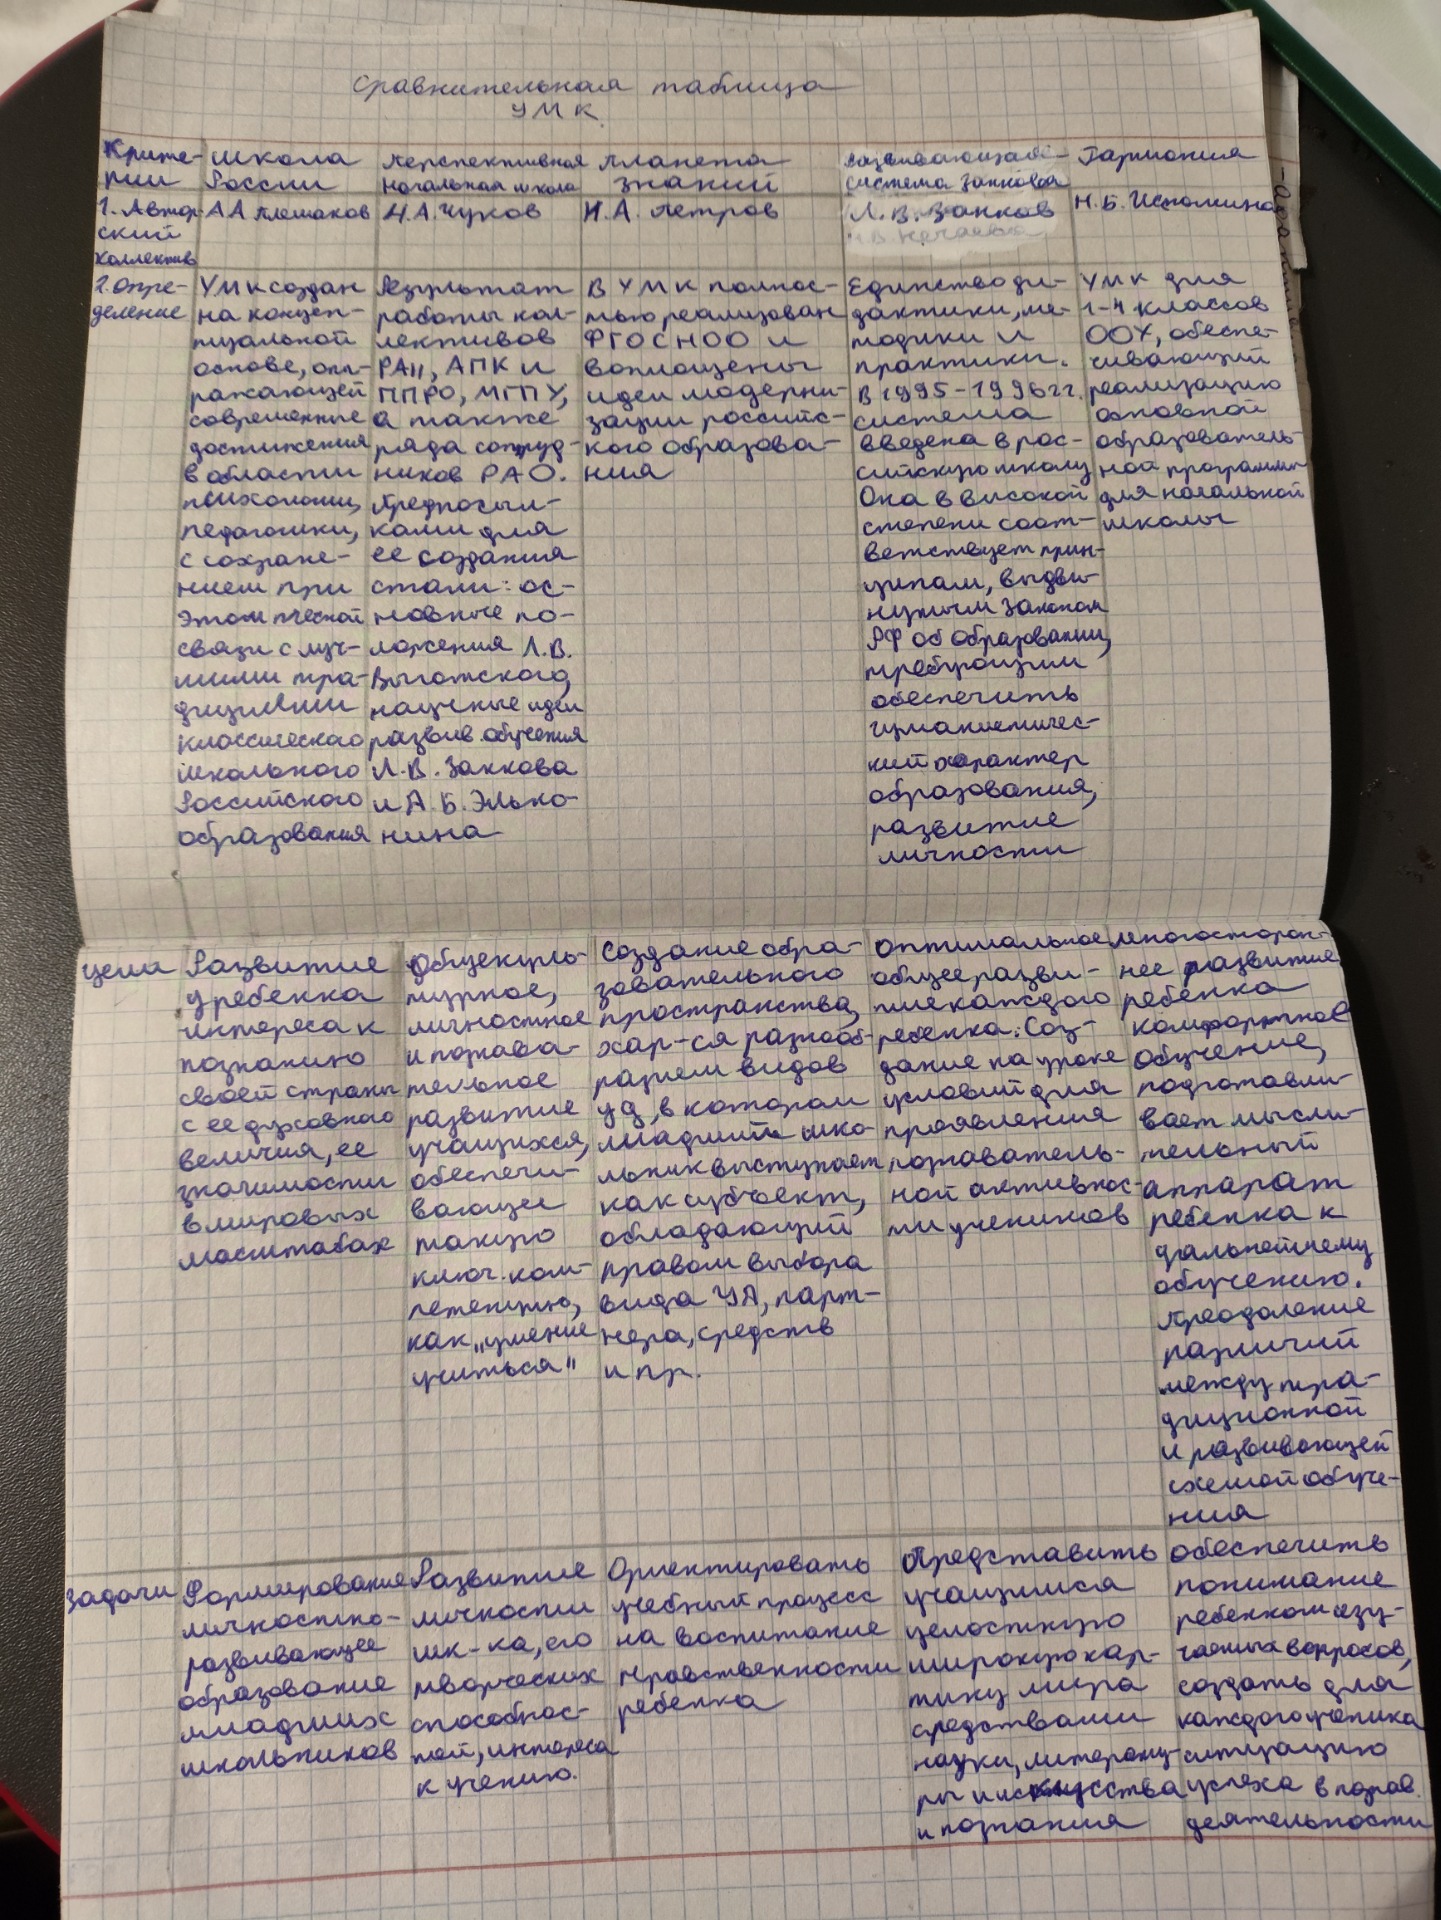 Сравнительная таблица
УМК
Крите-
рии
Школа
России
Перспективная
начальная школа
Планета
знаний
Развивающая
система Занкова
Гармония
1. Автор
ский
коллектив
А А Плешаков
Н.А. Чуков
И. А. Петров
Л. В. Занков
Н. Б. Истомина
2. Опре-
деление
УМК создан
на концеп-
туальной
основе, отп-
ражающей
современные
достижения
в области
психологии,
педагогики,
с сохране-
нием при
этом тесной
связи с луч-
шими тра-
дициями
классическаго
школьного
Российского
образования
Результат
работы кол-
лективов
РАН, АПК и
ППРО, МГПУ,
а также
ряда сотруд-
ников РАО.
Предпосыл-
ками для
ее создания
стали: ос-
новные по-
ложения Л.В.
Выготского,
научные идеи
развив. обучения
Л.В. Занкова
и А. Б. Элько-
нина
В УМК полнос-
тью реализован
ФГОС НОО и
воплощены
идеи модерни-
зации российс-
кого образова-
ния
Единство ди-
дактики, ме-
тодики и
практики.
В 1995-1996 гг.
система
введена в рос-
сийскую школу
Она в высокой
степени соот-
ветствует прин-
ципам, выдви-
нутым законом
РФ об образовании,
требующим
обеспечить
гуманистичес-
кий характер
образования,
развитие
личности
УМК для
1-4 классов
ООУ, обеспе-
чивающий
реализацию
основной
образователь-
ной программы
для начальной
школы
Цели
Развитие
у ребенка
интереса к
познанию
своей страны
с ее духовного
величия, ее
значимости
в мировых
масштабах
Общекуль-
турное,
личностное
и познава-
тельное
развитие
учащихся,
обеспечи-
вающее
такую
ключ. ком-
петенцию,
как "умение
учиться"
Создание обра-
зовательного
пространства,
хар-ся разнооб-
разием видов
УД, в котором
младший шко-
льник выступает
как субъект,
обладающий
правом выбора
вида УД, парт-
нера, средств
и пр.
Оптимальное
общее разви-
тие каждого
ребенка. Соз-
дание на уроке
условий для
проявления
познаватель-
ной активнос-
ти учеников
многосторон-
нее развитие
ребенка
комфортное
обучение,
подготавли-
вает мысли-
тельный
аппарат
ребенка к
дальнейшему
обучению.
Преодоление
различий
между тра-
диционной
и развивающей
схемой обуче-
ния
Задачи
Формирование
личностно-
развивающее
образование
младших
школьников
Развитие
личности
шк-ка, его
творческих
способнос-
тей, интереса
к учению.
Ориентировать
учебный процесс
на воспитание
нравственности
ребенка
Представить
учащимся
целостную
широкую кар-
тину мира
средствами
науки, литерату-
ры и искусства
и познания
обеспечить
понимание
ребенком изу-
чаемых вопросов,
создать для
каждого ученика
ситуацию
успеха в познав.
деятельности